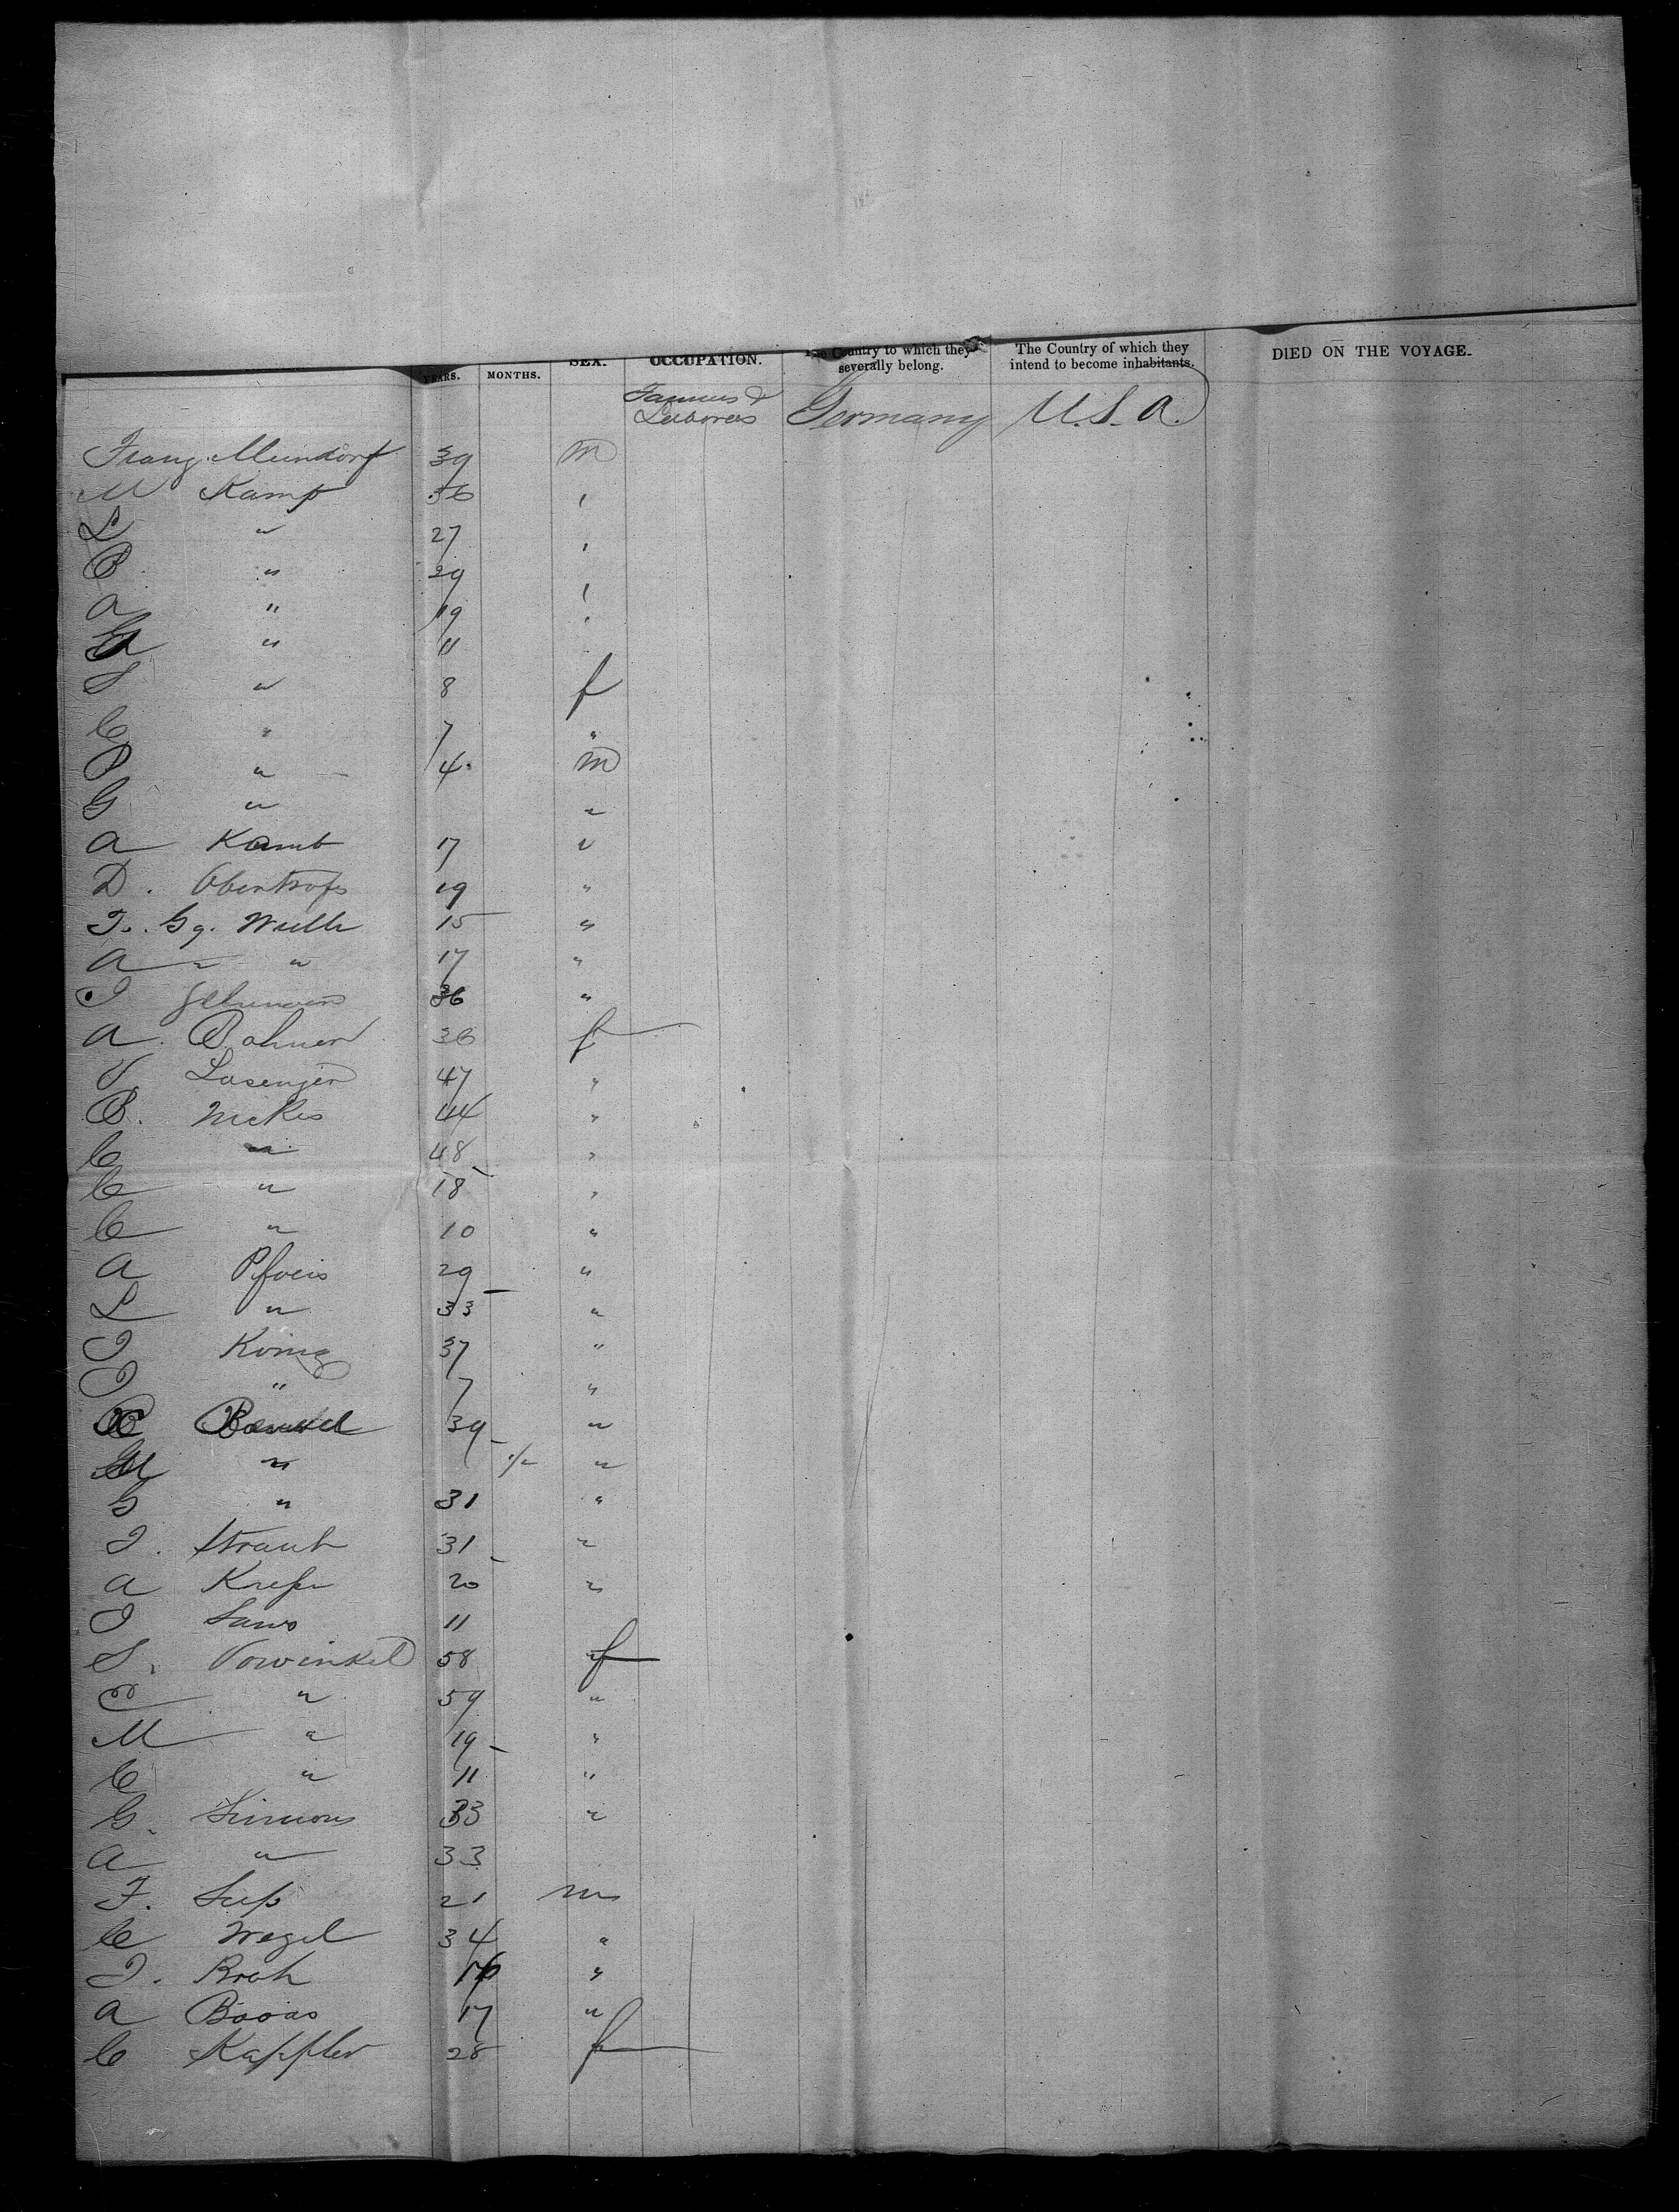 YEARS. MONTHS. SEX. OCCUPATION. The Country to which they severally belong. The Country of which they intend to become inhabitants. DIED ON THE VOYAGE.
Farmers & Laborers Germany U.S.A.
Franz Meindorf 39 m
M Kamp 36 "
L " 27 "
P. " 29 "
A " 19 "
" 11
S " 8 f
C " 7 "
P " 4 m
G " "
A Kamb 17 "
D. Obentrops 19 "
J. Gg. Wulle 15 "
A " " 17 "
J 36 "
A. Bohner 36 f
Lasenger 47 "
B. Nickes 44 "
C " 48 "
C " 18 "
C " 10 "
A Pfoeis 29 "
L " 33 "
J König 37 "
J " 7 "
39 "
M " "
G " 31 "
J. Straub 31 "
A 20 "
J 11
S. Vowinkel 58 f
" 59 "
M " 19 "
C " 11 "
G. Simons 33 "
A " 33
F. 21 m
C Wegel 34 "
J. Broh "
A 17 "
C Kappler 28 f